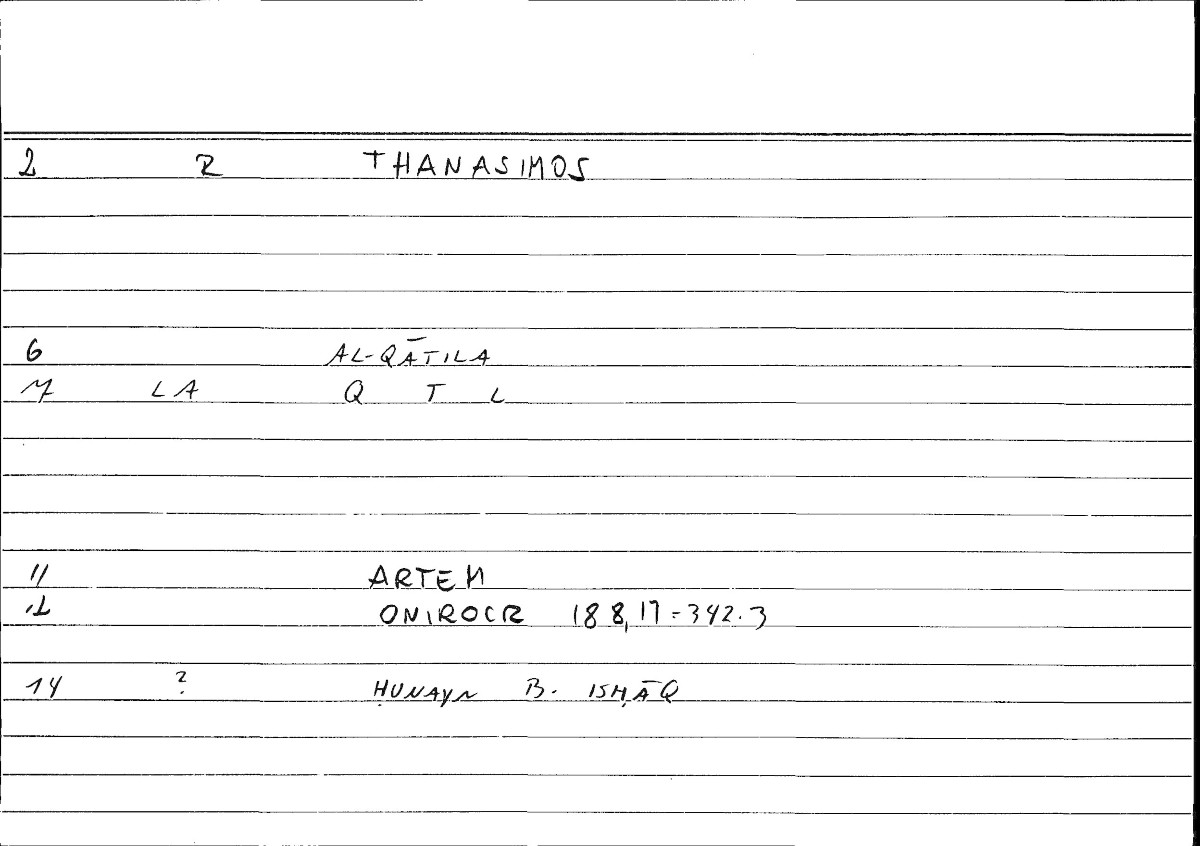 2 R THANASIMOS
6 AL-QĀTILA
7 LA Q T L
11 ARTEM
12 ONIROCR 188,17=342.3
14 ? ḤUNAYN B. ISḤĀQ